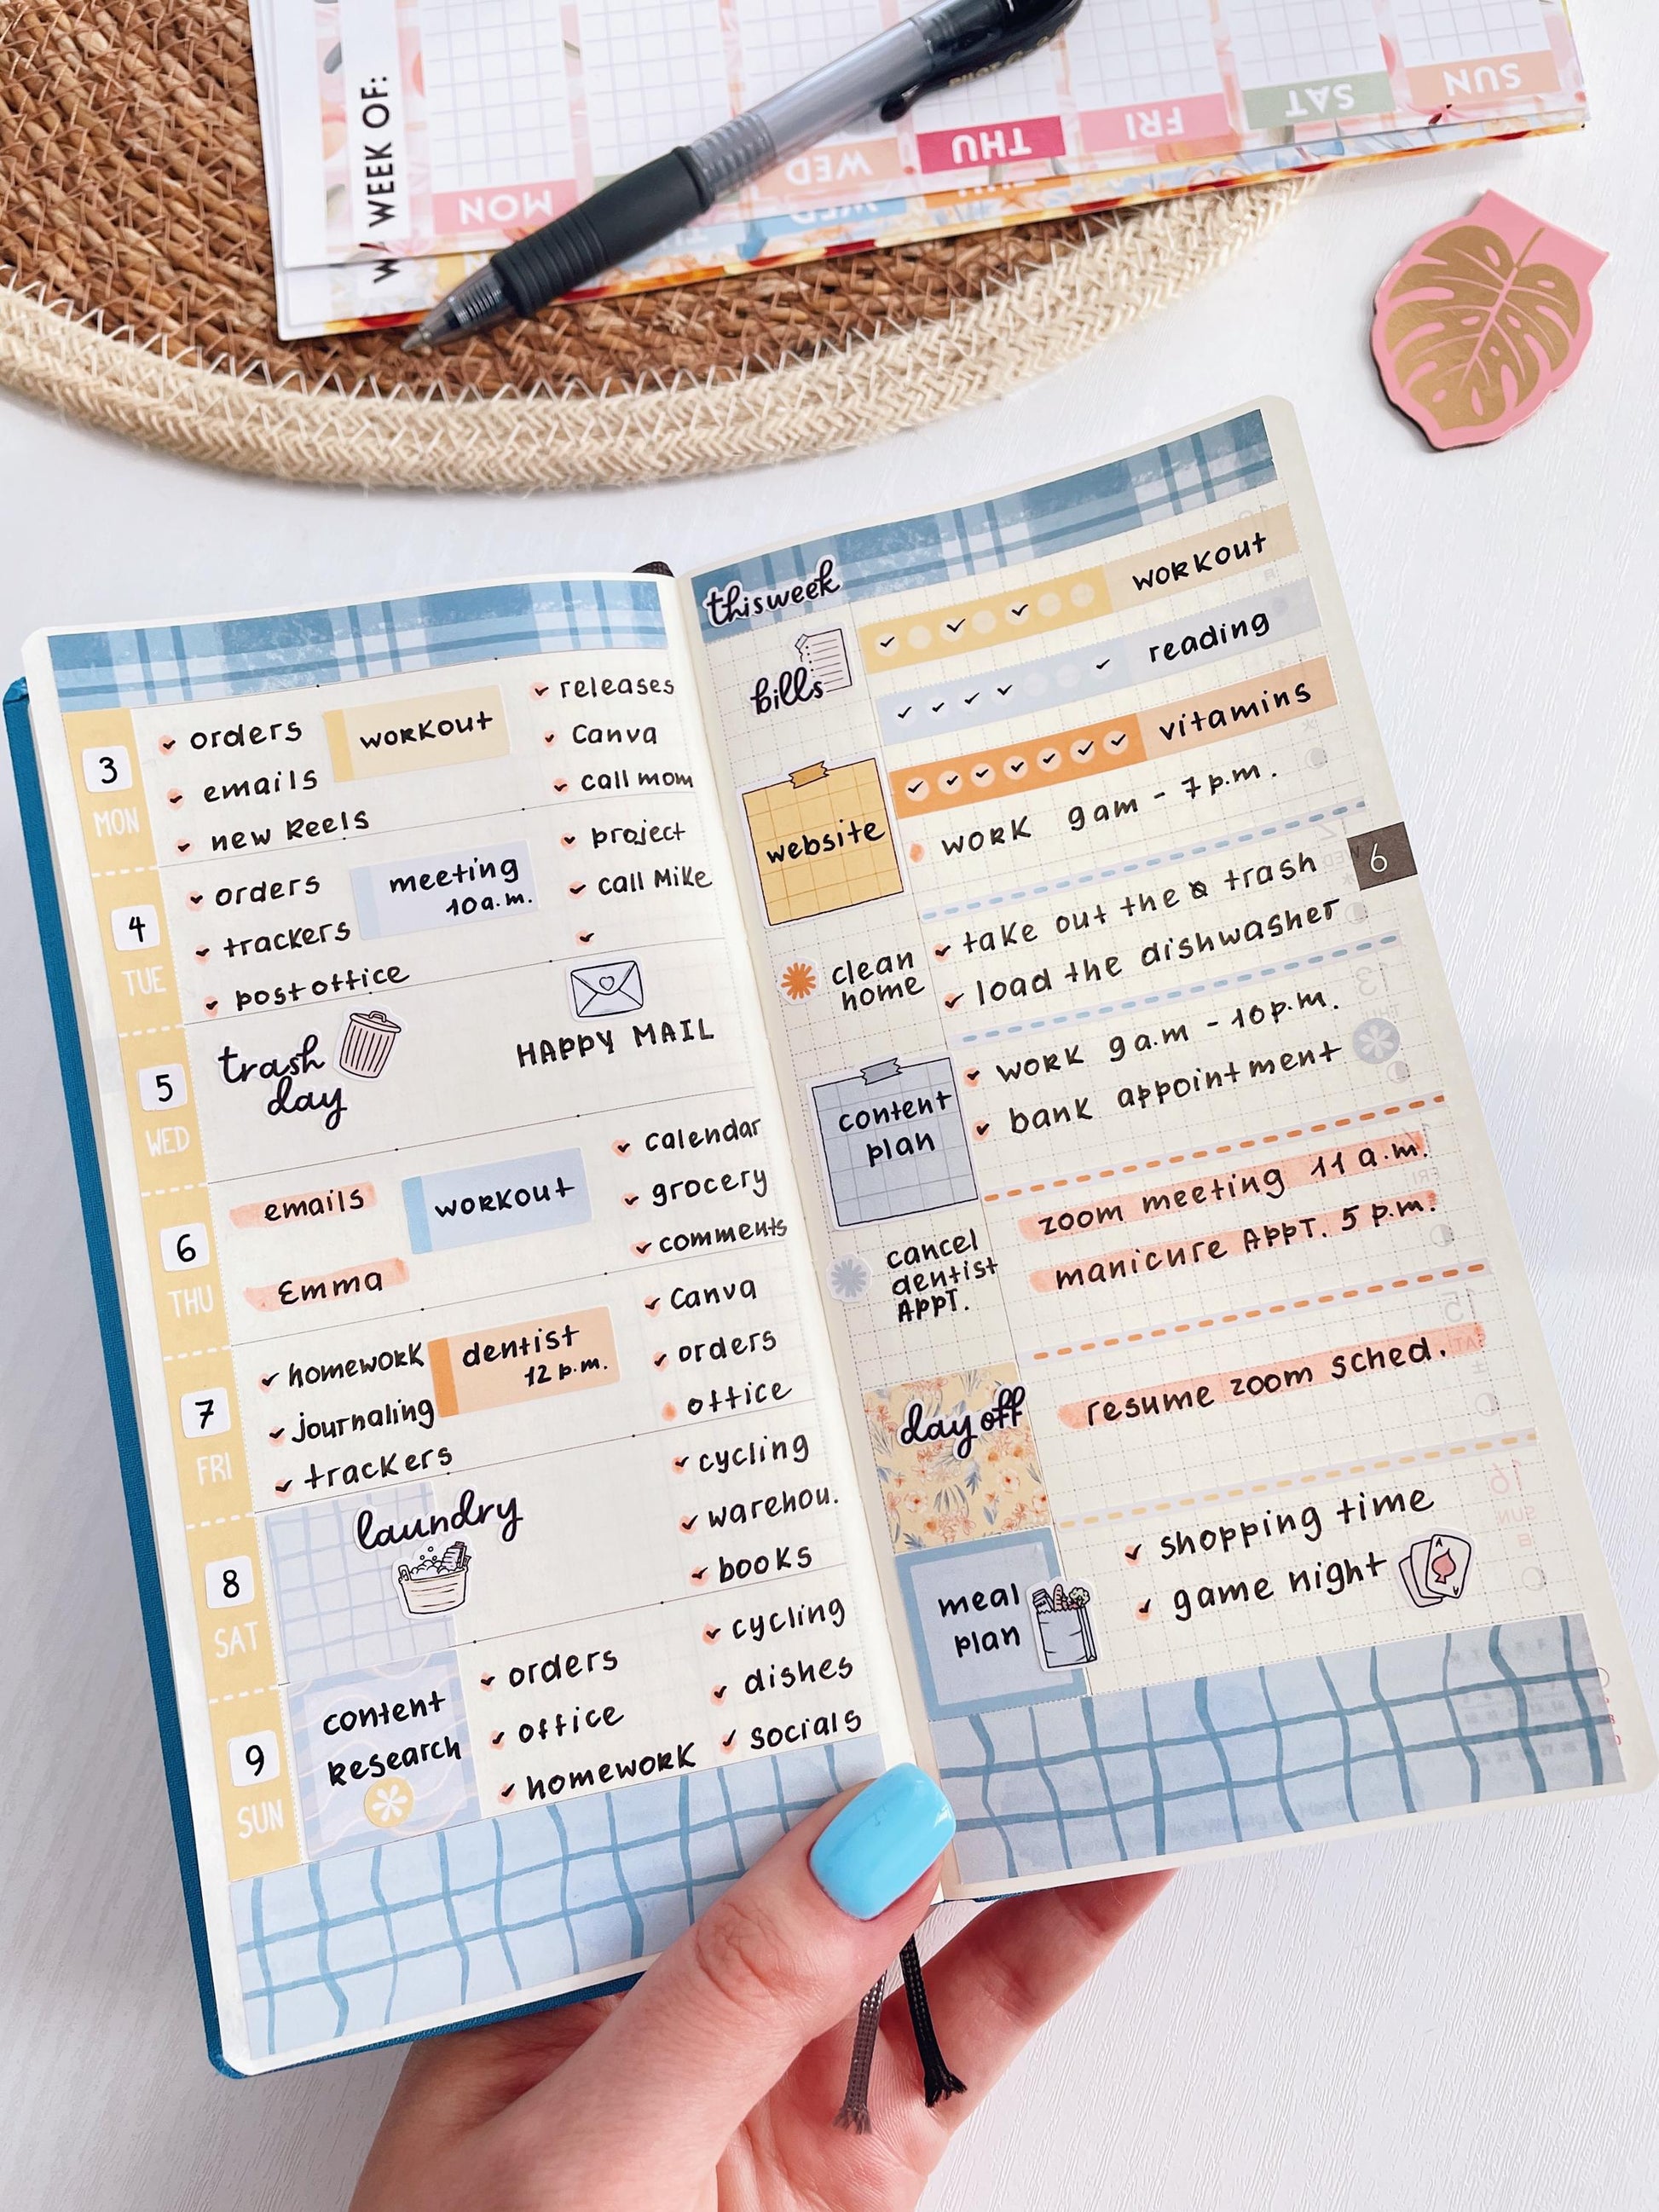 WEEK OF:
MON
WED
THU
FRI
SAT
SUN
WED
3
MON
orders
emails
new Reels
workout
releases
Canva
call mom
4
TUE
orders
trackers
post office
meeting
10a.m.
project
call Mike
5
WED
trash
day
HAPPY MAIL
6
THU
emails
Emma
workout
calendar
grocery
comments
7
FRI
homework
journaling
trackers
dentist
12 p.m.
Canva
orders
office
8
SAT
laundry
cycling
warehou.
books
9
SUN
content
research
orders
office
homework
cycling
dishes
socials
this week
bills
workout
reading
vitamins
website
work 9am - 7p.m.
6
clean
home
take out the trash
load the dishwasher
content
plan
work 9a.m - 10p.m.
bank appointment
cancel
dentist
APPT.
zoom meeting 11 a.m.
manicure APPT. 5 p.m.
day off
resume zoom sched.
meal
plan
shopping time
game night
A